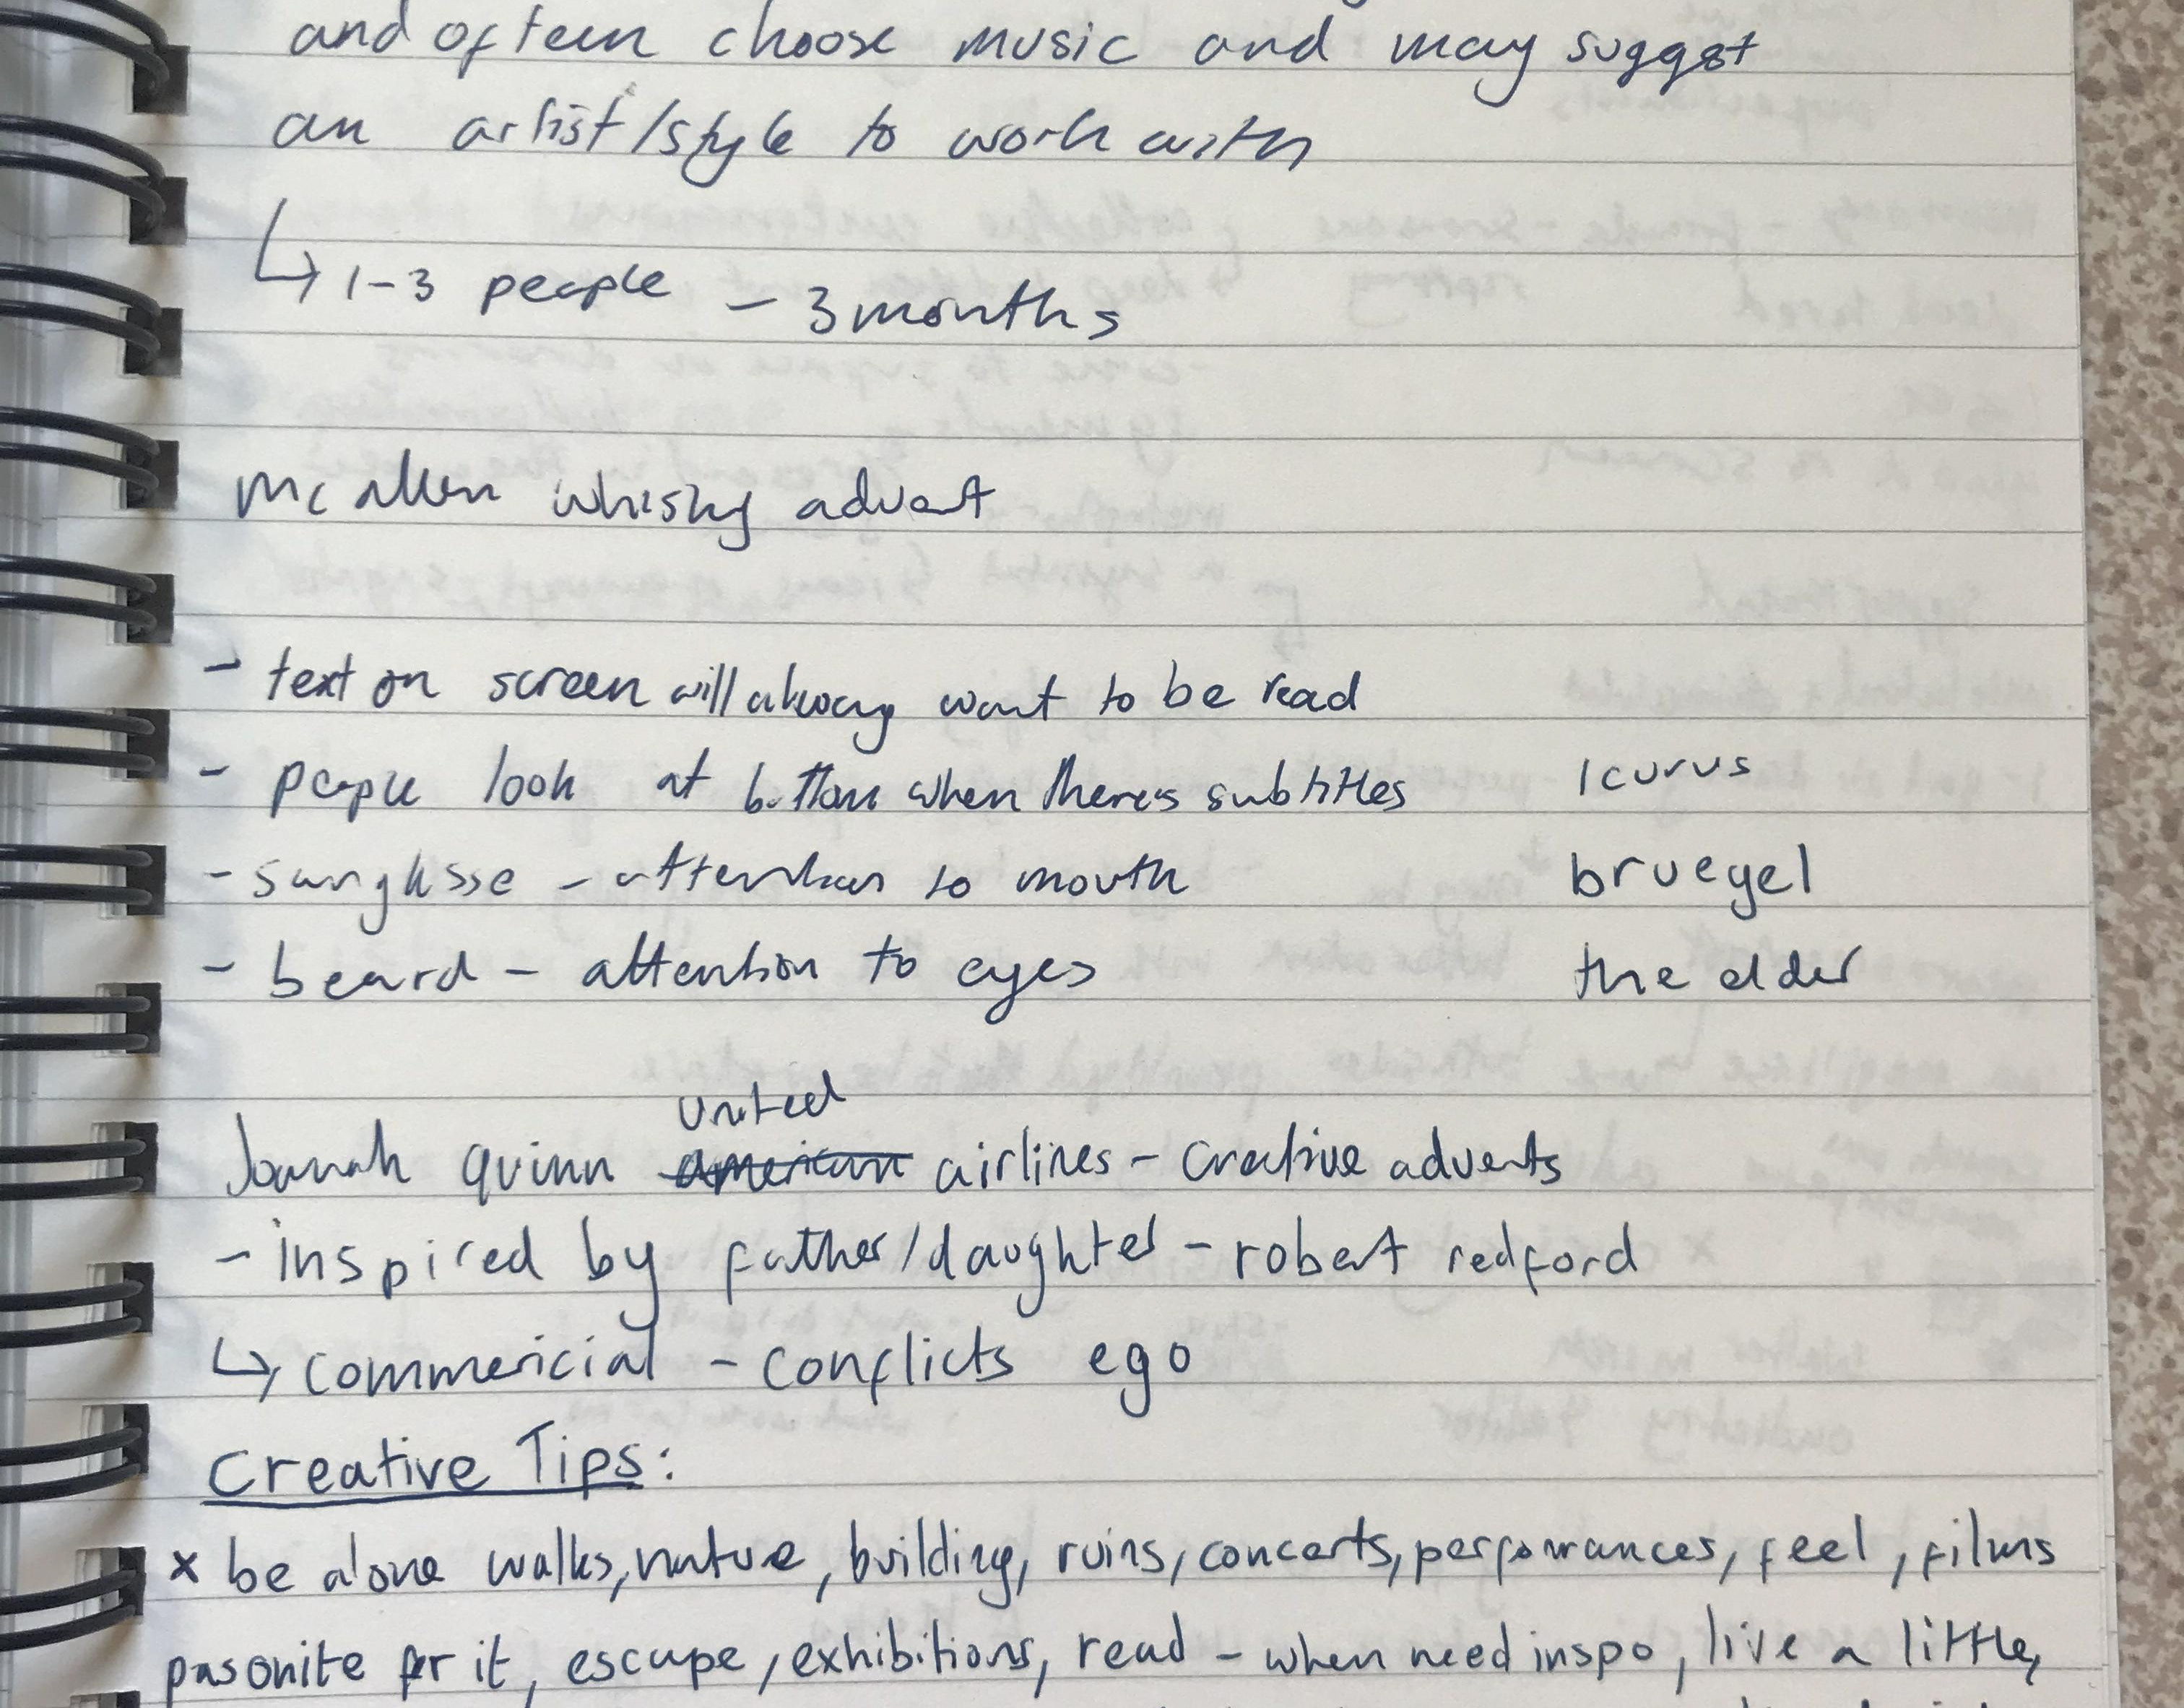 and ofteen choose music and may suggst
an artist/style to work with
↳ 1-3 people - 3 months
mcallen whisky advert
- text on screen will always want to be read
- people look at bottom when there's subtitles
Icurus
- sunglasse - attention to mouth
bruegel
- beard - attention to eyes
the elder
united
Joanah quinn american airlines - creative adverts
- inspired by father/daughter - robert redford
↳ commericial - conflicts ego
Creative Tips:
x be alone walks, nature, building, ruins, concerts, performances, feel, films
pasonite for it, escape, exhibitions, read - when need inspo, live a little,